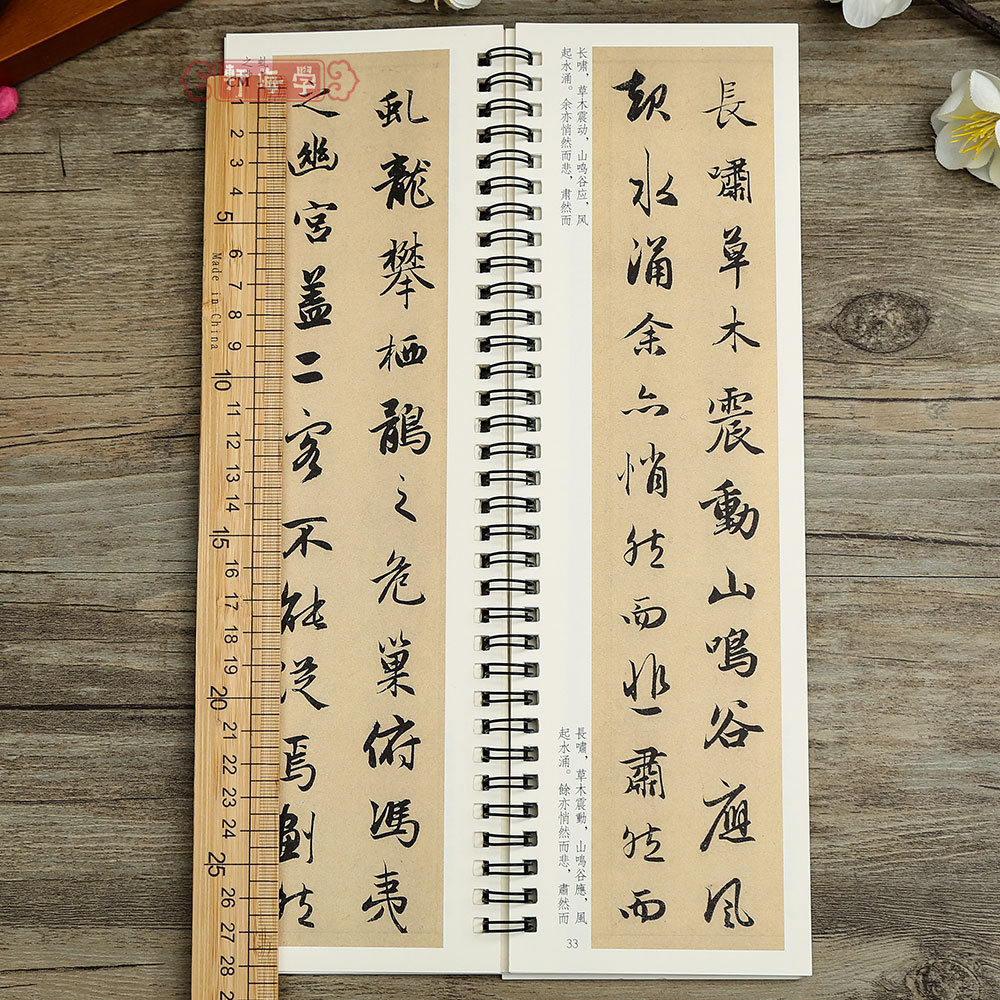 學海軒
虬龍攀栖鶻之危巢俯馮夷
之幽宮蓋二客不能從焉劃然
长啸，草木震动，山鸣谷应，风
起水涌。余亦悄然而悲，肃然而
長嘯草木震動山鳴谷應風
起水涌余亦悄然而悲肅然而
長嘯，草木震動，山鳴谷應，風
起水涌。餘亦悄然而悲，肅然而
33
CM
2
3
4
5
6
7
8
9
10
11
12
13
14
15
16
17
18
19
20
21
22
23
24
25
26
27
28
Made in China